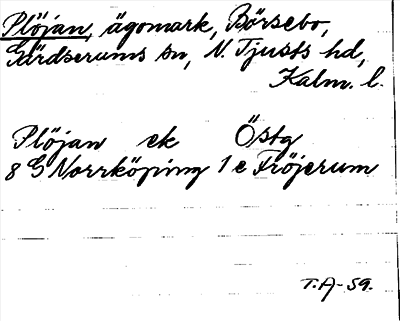 Plöjan, ägomark, Börsebo,
Gärdserums sn, N. Tjusts hd,
Kalm. l.
Plöjan ek Östg
8 G Norrköping 1 e Fröjerum
T.A-59.